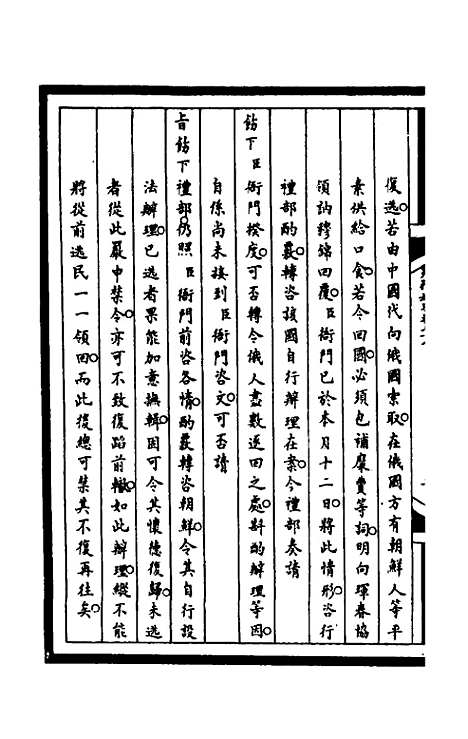 復逃。若由中國代向俄國索取。在俄國方有朝鮮人等平
素供給口食。若今回國。必須包補糜費等詞。明向琿春協
領訥穆錦回覆。臣衙門已於本月十二日。將此情形咨行
禮部酌覈。轉咨該國自行辦理在案。今禮部奏請
飭下臣衙門揆度。可否轉令俄人盡數逐回之處。斟酌辦理等因。
自係尚未接到臣衙門咨文。可否請
旨飭下禮部。仍照臣衙門前咨各情。酌覈轉咨朝鮮。令其自行設
法辦理。已逃者果能加意撫輯。固可令其懷德復歸。未逃
者從此嚴申禁令。亦可不致復蹈前轍。如此辦理。縱不能
將從前逃民一一領回。而此後總可禁其不復再往矣。